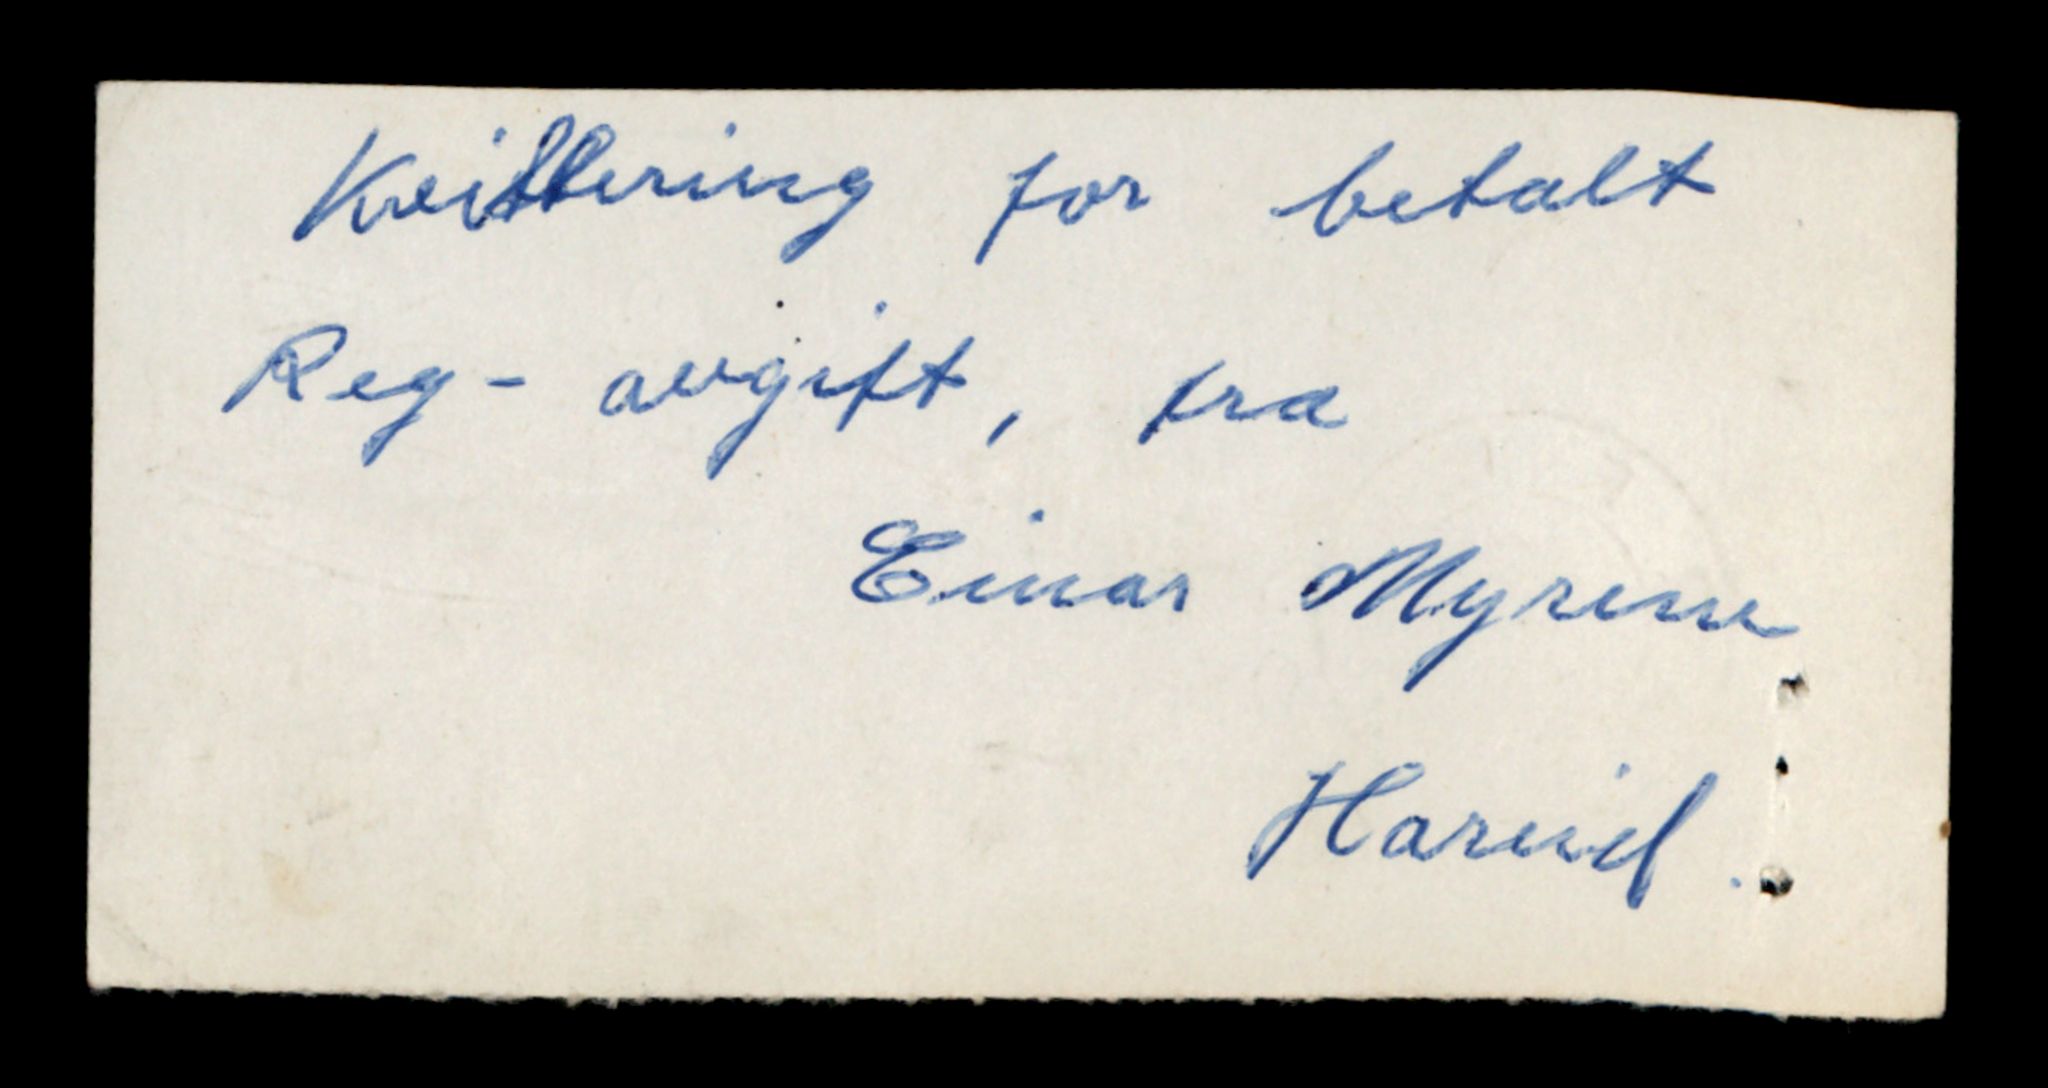 Kvittering for betalt
Reg- avgift, fra
Einar Myrene
Hareid.